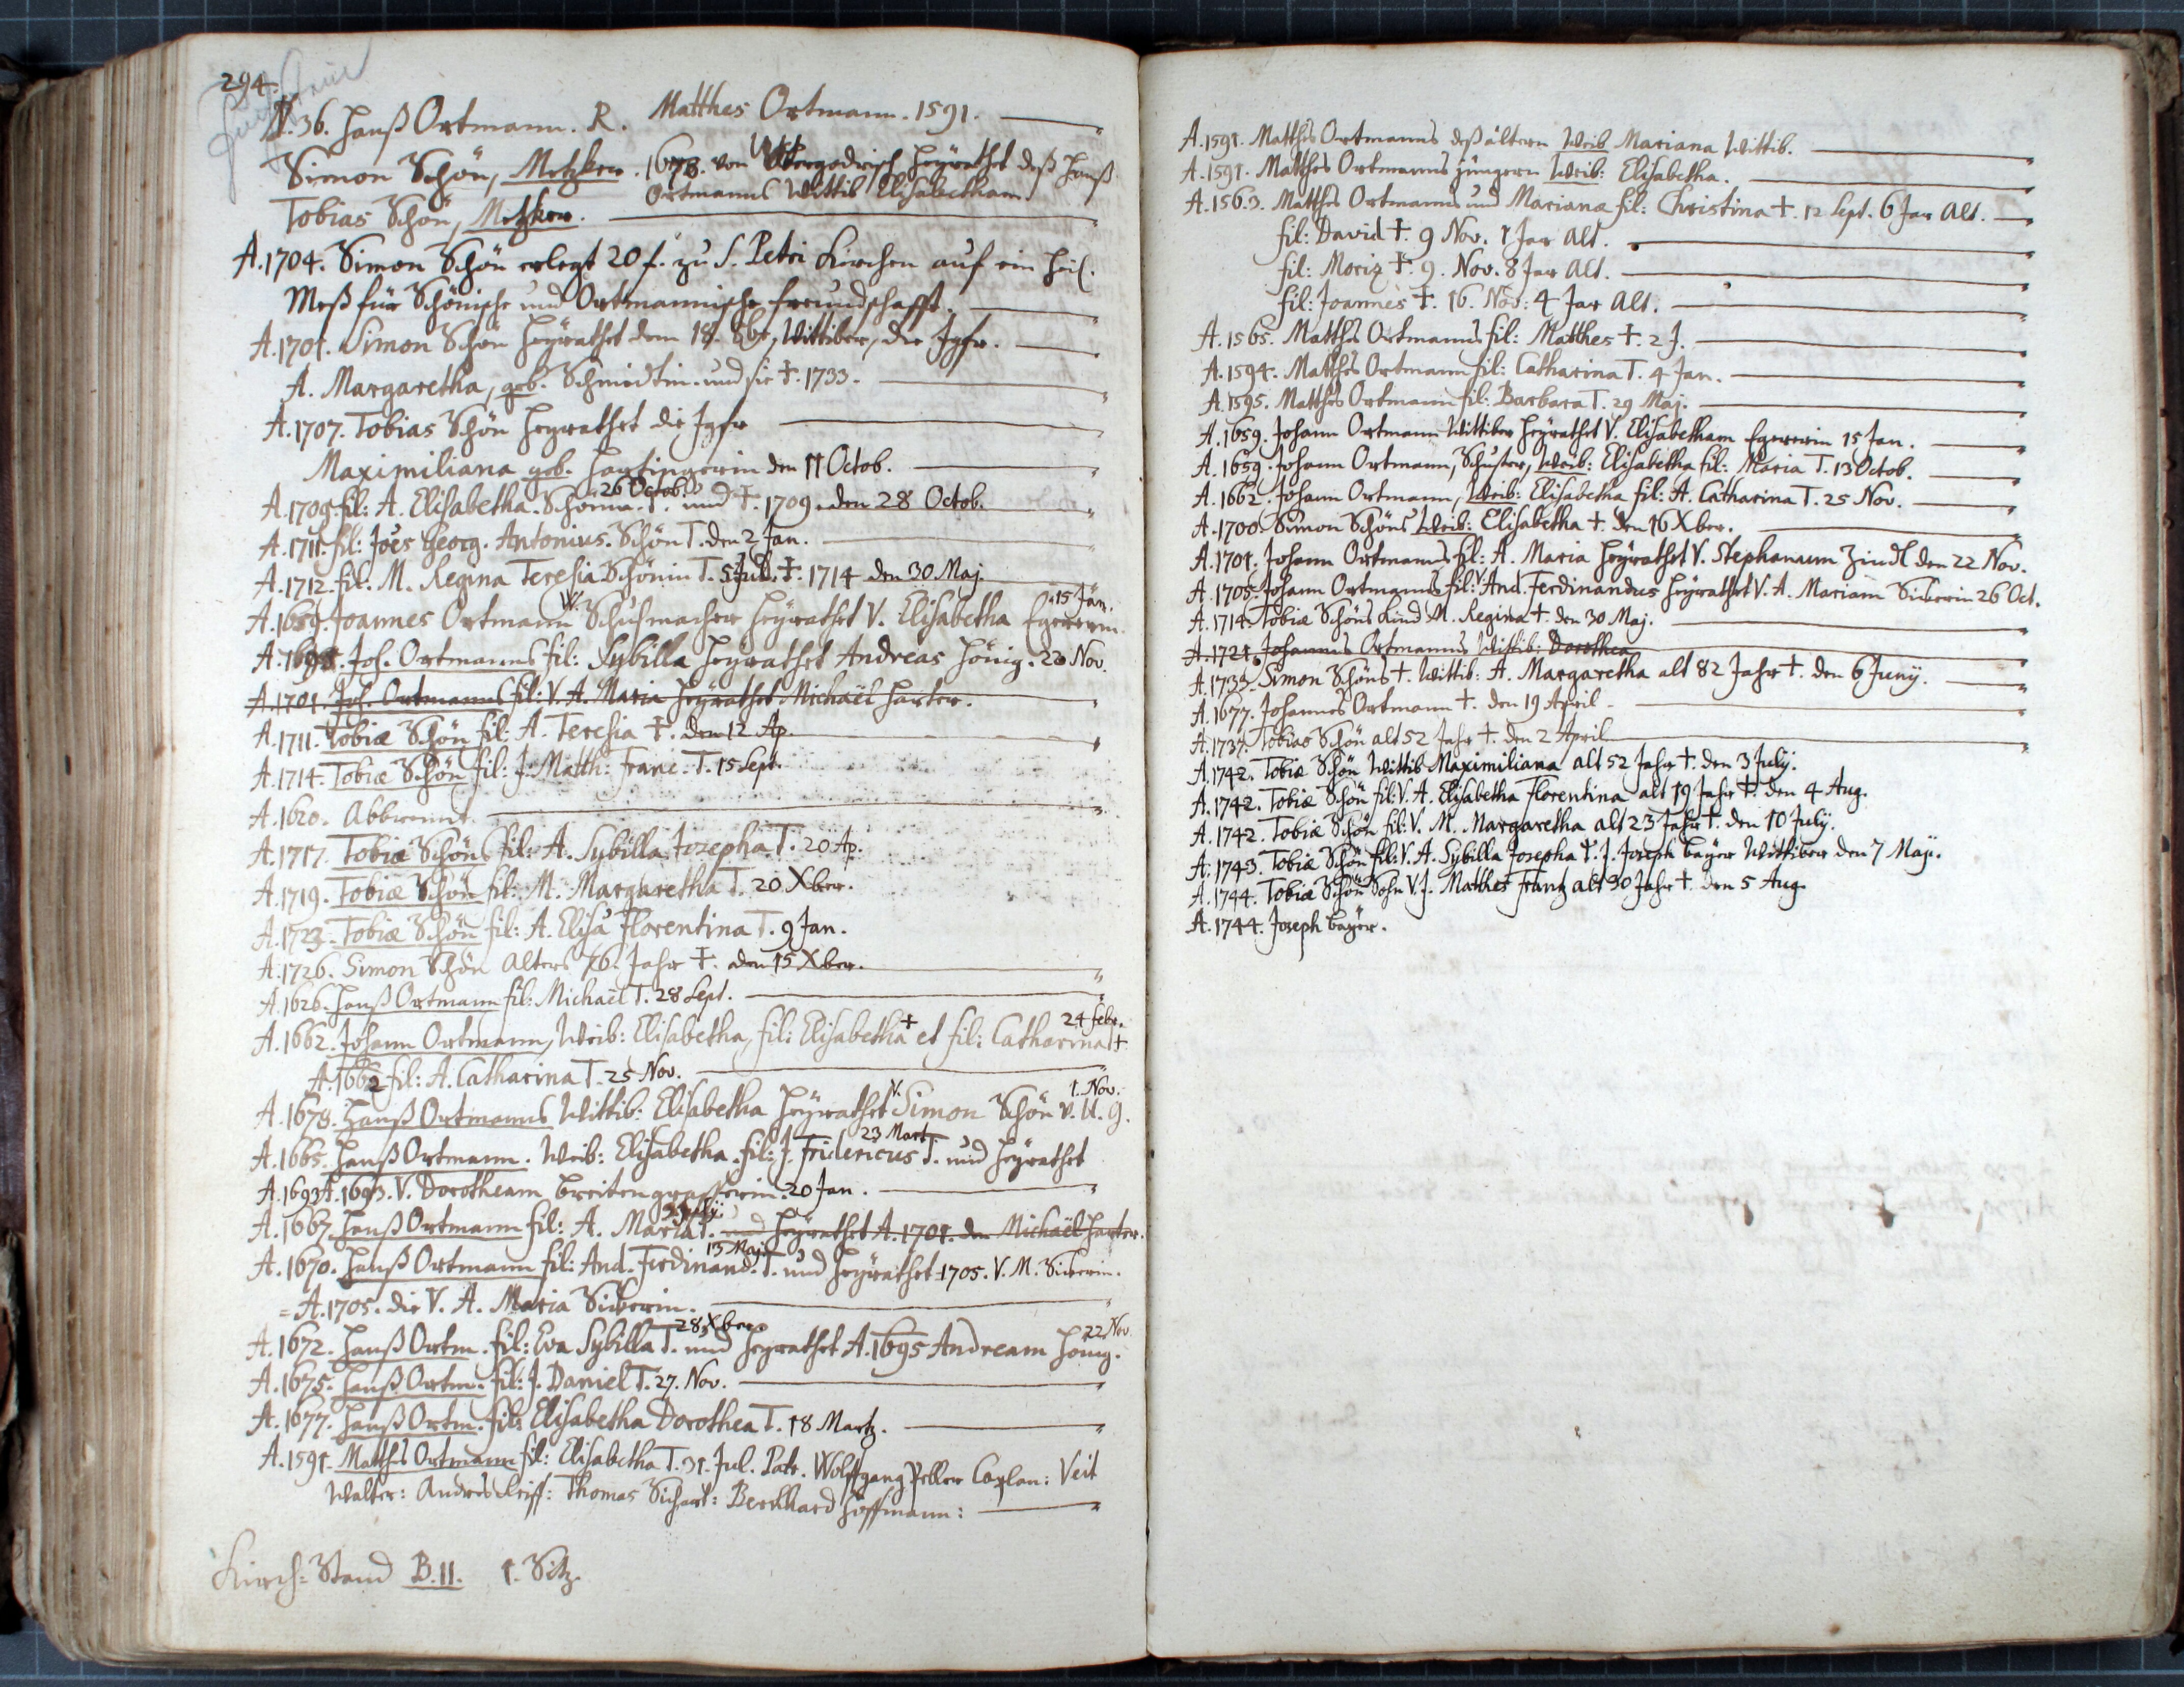 294.
N. 36. Hanß Ortmann. R. Matthes Ortmann. 1591.
Simon Schön, Metzker. 1678. von Untergodrisch heÿrathet deß Hanß
Ortmanns Wittib Elisabetham.
Tobias Schön, Metzker.
A. 1704. Simon Schön erlegt 20 f. zu S. Petri Kirchen auf ein Heil.
Meß für Schönische und Ortmannische freundschafft.
A. 1701. Simon Schön heÿrathet dem 18. Wittiber, die Jgfr.
A. Margaretha, geb. Schmidtin. und sie †. 1733.
A. 1707. Tobias Schön heyrathet die Jgfr
Maximiliana geb. Hartingerin den 11 Octob.
26 Octob.
A. 1709. fil: A. Elisabetha. Schönin. T. und †. 1709. den 28 Octob.
A. 1711. fil: Joēs Georg. Antonius. Schön T. den 2 Jan.
A. 1712. fil: M. Regina Teresia Schönin T. 5 Jul. †. 1714 den 30 Maj.
15 Jan.
A. 1659. Joannes Ortmann W. Schuhmacher heÿrathet V. Elisabetha Egererin
A. 1695. Joh. Ortmanns fil: Sybilla heyrathet Andreas Hönig. 22 Nov.
A. 1701. Joh. Ortmanns fil: V. A. Maria heÿrathet Michaël Harter.
A. 1711. Tobiæ Schön fil: A. Teresia †. den 12 Ap.
A. 1714. Tobiæ Schön fil: J. Matth: Franc. T. 15 Sept.
A. 1620. Abbrennt.
A. 1717. Tobiæ Schöns fil: A. Sybilla Josepha T. 20 Ap.
A. 1719. Tobiæ Schön fil: M. Margaretha T. 20 Xber.
A. 1723. Tobiæ Schön fil: A. Elisa Florentina T. 9 Jan.
A. 1726. Simon Schön alters 76. Jahr †. den 15 Xber.
A. 1626. Hanß Ortmann fil: Michaël T. 28 Sept.
24 febr.
A. 1662. Johann Ortmann, Weib: Elisabetha, fil: Elisabetha † et fil: Catharina †
A. 1662 fil: A. Catharina T. 25 Nov.
1. Nov.
A. 1678. Hanß Ortmanns Wittib: Elisabetha heÿrathet V. Simon Schön v. U. g.
23 Mart.
A. 1665. Hanß Ortmann. Weib: Elisabetha. fil: J. Fridericus T. und heÿrathet
A. 1693 A. 1693. V. Dorotheam Breitengrasserin. 20 Jan.
A. 1667. Hanß Ortmann fil: A. Maria T. und heÿrathet A. 1701. den Michaël Harter.
13 Maj
A. 1670. Hanß Ortmann fil: And. Ferdinand. T. und heÿrathet 1705. V. M. Sieberin.
= A. 1705. die V. A. Maria Sieberin.
28 Xber. 22 Nov.
A. 1672. Hanß Ortm. fil: Eva Sybilla T. und heyrathet A. 1695 Andream Hönig.
A. 1675. Hanß Ortm. fil: J. Daniel T. 27. Nov.
A. 1677. Hanß Ortm. fil: Elisabetha Dorothea T. 18 Martz.
A. 1591. Matthes Ortmann fil: Elisabetha T. 31. Jul. Patr. Wolfgang Peller Caplan: Veit
Walter: Andres Reiß: Thomas Sichart: Bernhard Hoffmann:
Kirch: Stand B. 11. 1. Sitz.
A. 1591. Matthes Ortmanns deß ältern Weib Mariana Wittib.
A. 1591. Matthes Ortmanns jüngern Weib: Elisabetha.
A. 1563. Matthes Ortmanns und Mariana fil: Christina †. 12 Sept. 6 Jar Alt.
fil: David †. 9 Nov. 1 Jar Alt.
fil: Moriz †. 9. Nov. 8 Jar Alt.
fil: Joannes †. 16. Nov: 4 Jar Alt.
A. 1565. Matthes Ortmanns fil: Matthes †. 2 J.
A. 1594. Matthes Ortmann fil: Catharina T. 4 Jan.
A. 1595. Matthes Ortmann fil: Barbara T. 29 Maj.
A. 1659. Johann Ortmann Wittiber heÿrathet V. Elisabetham Egererin 15 Jan.
A. 1659. Johann Ortmann, Schuster, Weib: Elisabetha fil: Maria T. 13 Octob.
A. 1662. Johann Ortmann, Weib: Elisabetha fil: A. Catharina T. 25 Nov.
A. 1700. Simon Schöns Weib: Elisabetha †. den 16 Xber.
A. 1701. Johann Ortmanns fil: A. Maria heÿrathet V. Stephanum Zindl den 22 Nov.
A. 1705. Johann Ortmanns fil: V. And. Ferdinandus heÿrathet V. A. Mariam Sieberin 26 Oct.
A. 1714. Tobiæ Schöns Kind M. Regina †. den 30 Maj.
A. 1721. Johannes Ortmanns Wittib: Dorothea
A. 1733. Simon Schöns †. Wittib: A. Margaretha alt 82 Jahr †. den 6 Junÿ.
A. 1677. Johannes Ortmann †. den 19 April.
A. 1737. Tobias Schön alt 52 Jahr †. den 2 April
A. 1742. Tobiæ Schön Wittib Maximiliana alt 52 Jahr †. den 3 Julÿ.
A. 1742. Tobiæ Schön fil: V. A. Elisabetha Florentina alt 19 Jahr †. den 4 Aug.
A. 1742. Tobiæ Schön fil: V. M. Margaretha alt 23 Jahr †. den 10 Julÿ.
A. 1743. Tobiæ Schön fil: V. A. Sybilla Josepha J. Joseph Bayer Wittiber den 7 Maji.
A. 1744. Tobiæ Schön Sohn V. J. Mathes Frantz alt 30 Jahr †. den 5 Aug.
A. 1744. Joseph Bayer.